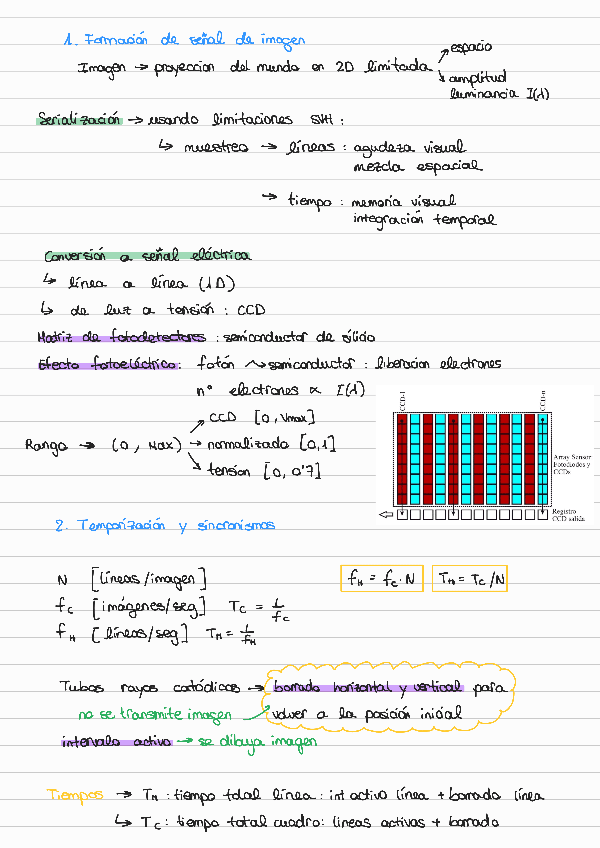 1. Formación de señal de imagen
Imagen → proyeccion del mundo en 2D limitada
espacio
amplitud
luminancia I(λ)
Serialización → usando limitaciones SVH :
↳ muestreo → líneas : agudeza visual
mezcla espacial
→ tiempo : memoria visual
integración temporal
Conversión a señal eléctrica
↳ línea a línea (1D)
↳ de luz a tensión : CCD
Matriz de fotodetectores : semiconductor de silicio
Efecto fotoeléctrico : fotón ↝ semiconductor : liberacion electrones
nº electrones ∝ I(λ)
Rango → (0, Max)
CCD [0, Vmax]
→ normalizado [0,1]
tension [0, 0'7]
CCD-1
CCD-n
Array Sensor
Fotodiodos y
CCDs
Registro
CCD salida
2. Temporización y sincronismos
N [líneas/imagen]
fH = fC · N
TH = TC /N
fC [imágenes/seg] TC = 1/fC
fH [líneas/seg] TH = 1/fH
Tubos rayos catódicos → borrado horizontal y vertical para
no se transmite imagen
volver a la posición inicial
intervalo activo → se dibuja imagen
Tiempos → TH : tiempo total línea : int activo línea + borrado línea
↳ TC : tiempo total cuadro : líneas activas + borrado